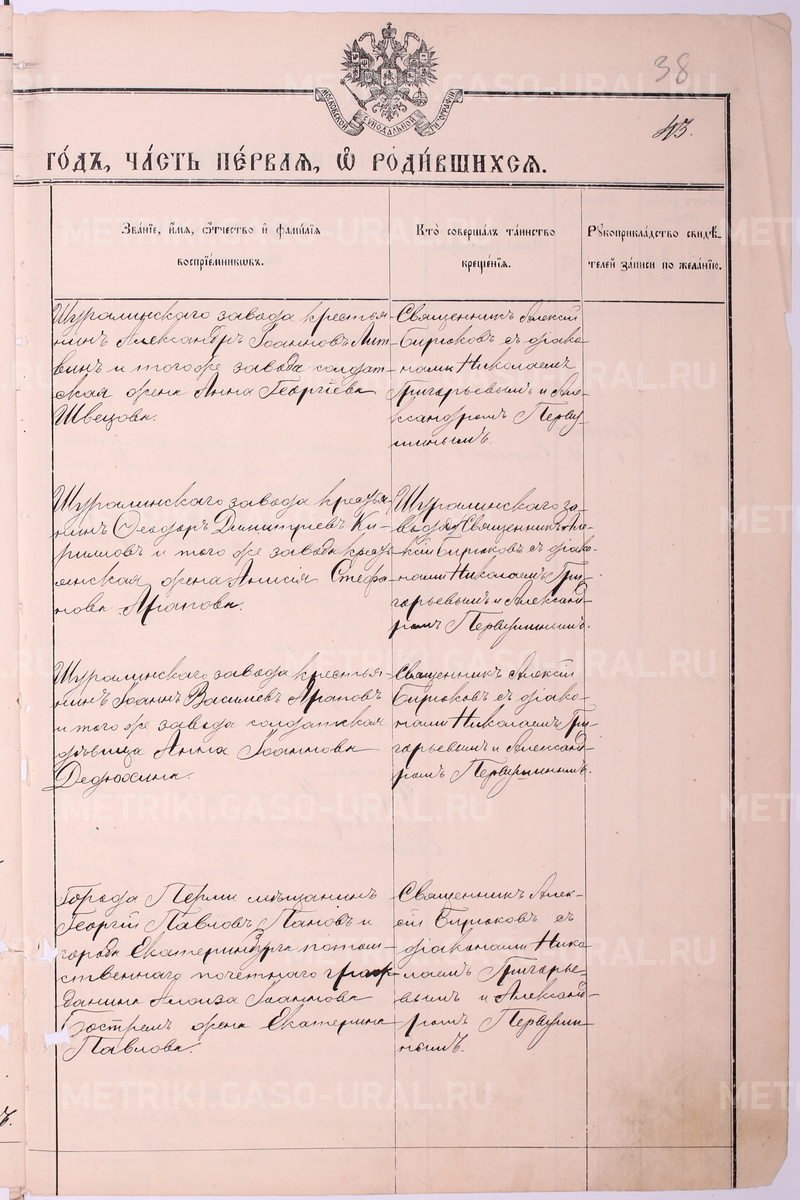 38
43.
МОСКОВСКОЙ СУНОДАЛЬНОЙ ТИПОГРАФІИ
ГОДЪ, ЧАСТЬ ПЕРВАЯ, Ѿ РОДИВШИХСЯ.
Званіе, имя, ѿчество и фамилія
воспріемниковъ.
Кто совершалъ таинство
крещенія.
Рꙋкоприкладство свидѣ-
телей записи по желанію.
Шуралинскаго завода крестья-
нинъ Александръ Іоанновъ Лит-
винъ и того же завода солдат-
ская жена Анна Георгіева
Швецова.
Священникъ Алексій
Бирюковъ съ діако-
нами Николаемъ
Григорьевымъ и Але-
ксандромъ Перву-
шинымъ.
Шуралинскаго завода крестья-
нинъ Ѳеодоръ Димитріевъ Ки-
рилловъ и того же завода кресть-
янская жена Анисія Стефа-
нова Арапова.
Шуралинскаго за-
вода Священникъ Але-
ксій Бирюковъ съ діако-
нами Николаемъ Гри-
горьевымъ и Александ-
ромъ Первушинымъ.
Шуралинскаго завода крестья-
нинъ Іоаннъ Васильевъ Араповъ
и того же завода солдатская
дѣвица Анна Іоаннова
Дедюхина.
Священникъ Алексій
Бирюковъ съ діако-
нами Николаемъ Гри-
горьевымъ и Александ-
ромъ Первушинымъ.
Города Перми мѣщанинъ
Георгій Павловъ Пановъ и
города Екатеринбурга потом-
ственнаго почетнаго граж-
данина Алоиза Іоаннова
Бостремъ жена Екатерина
Павлова.
Священникъ Алек-
сій Бирюковъ съ
діаконами Нико-
лаемъ Григорье-
вымъ и Александ-
ромъ Первуши-
нымъ.
METRIKI.GASO-URAL.RU